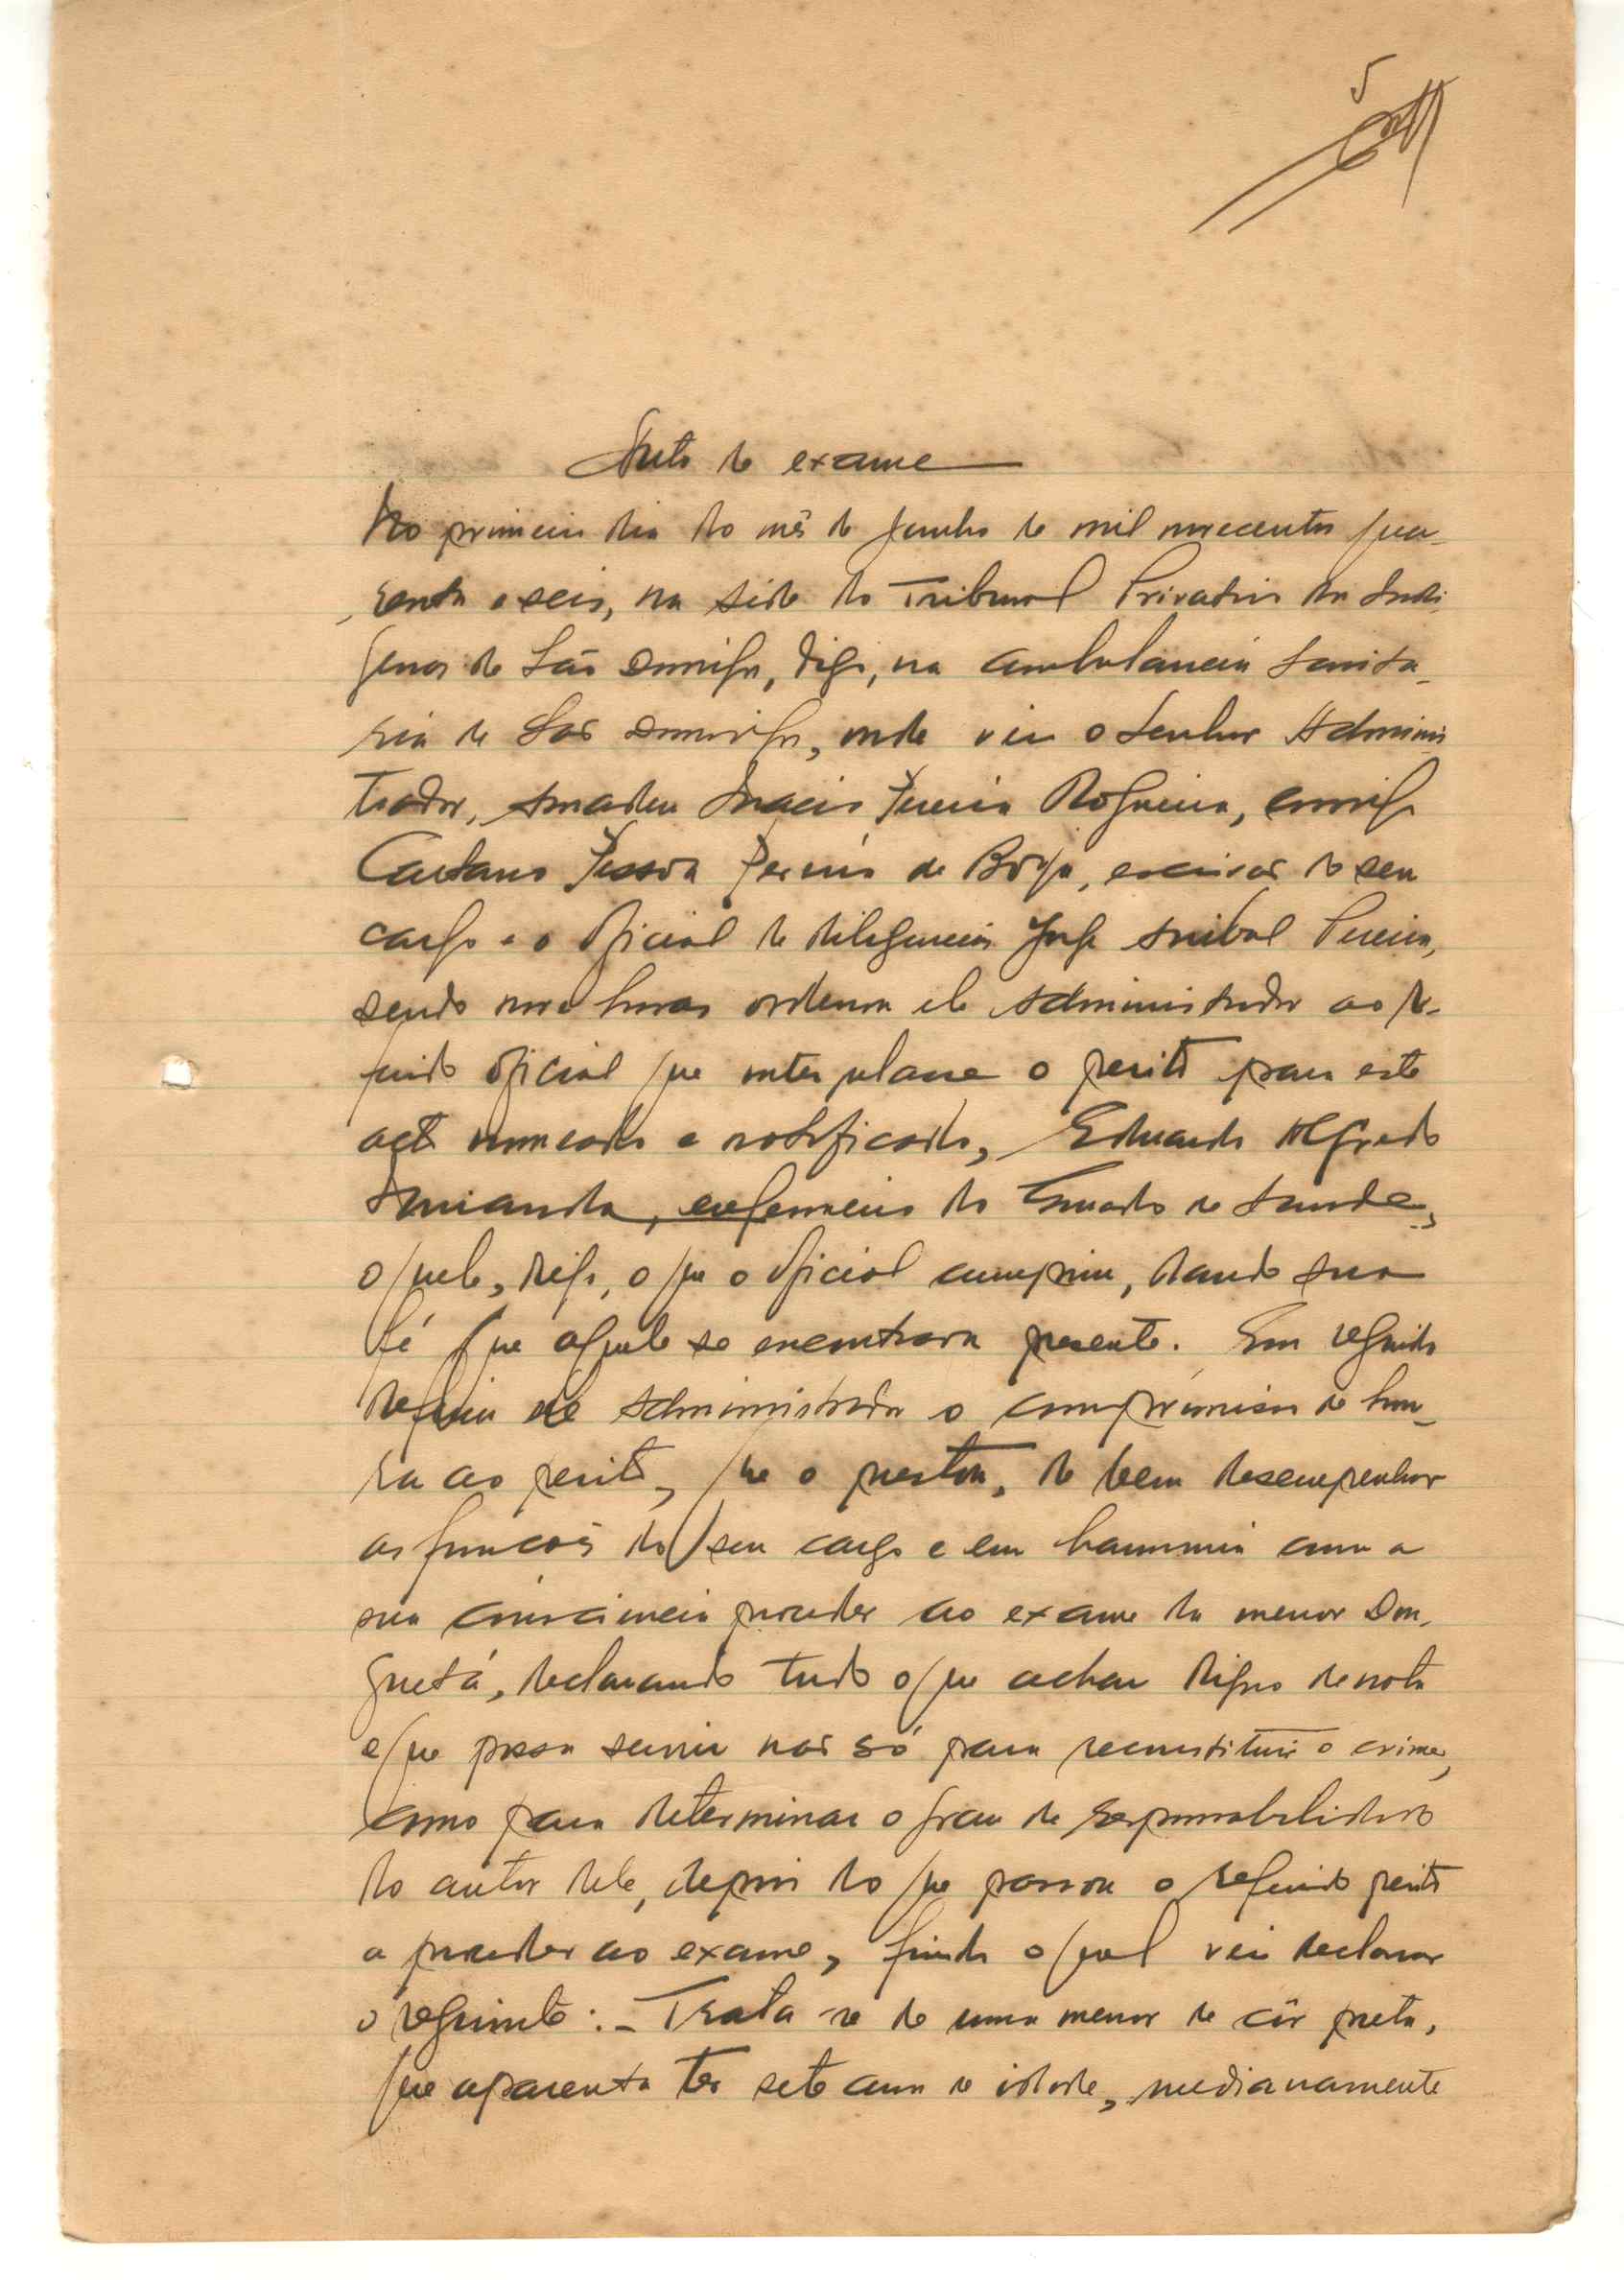 5
Auto de exame
No primeiro dia do mês de Junho de mil novecentos qua-
renta e seis, na séde do Tribunal Privativo dos Indi-
genas de São Domingos, digo, na ambulancia Sanita-
ria de São Domingos, onde veiu o Senhor Adminis-
trador, Amadeu Inacio Pereira Nogueira, comigo
Caetano Pessoa de Borja, escrivão do seu
cargo e o oficial de diligencias Jorge Anibal Pereira,
sendo nove horas ordenou ele Administrador ao re-
ferido oficial que interpelasse o perito para este
acto nomeado e notificado, Eduardo Alfredo
Miranda, enfermeiro do Quadro de Saude,
o quele, digo, o que o oficial cumpriu, dando sua
fé que aquele se encontrava presente. Em seguida
deferiu ele Administrador o compromisso de hon-
ra ao perito, que o prestou, de bem desempenhar
as funções do seu cargo e em harmonia com a
sua consciencia proceder ao exame da menor Don-
guetá, declarando tudo o que achar digno de nota
e que possa servir não só para reconstituir o crime,
como para determinar o grau de responsabilidade
do autor dele, depois do que passou o referido perito
a proceder ao exame, findo o qual veiu declarar
o seguinte:- Trata-se de uma menor de côr preta,
que aparenta ter sete anos de idade, medianamente